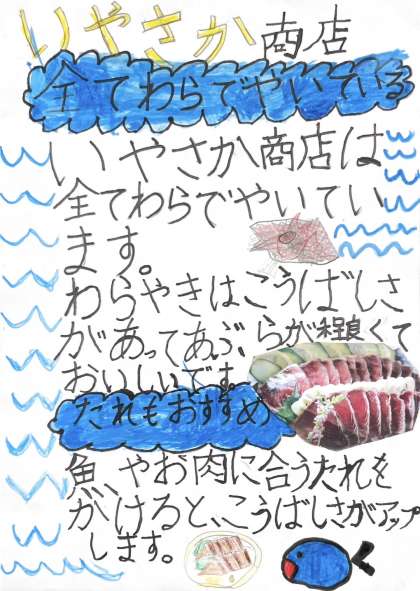 いやさか商店
全てわらでやいている
いやさか商店は
全てわらでやいてい
ます。
わらやきはこうばしさ
があってあぶらが程良くて
おいしいです
たれもおすすめ
魚、やお肉に合うたれを
かけると、こうばしさがアップ
します。